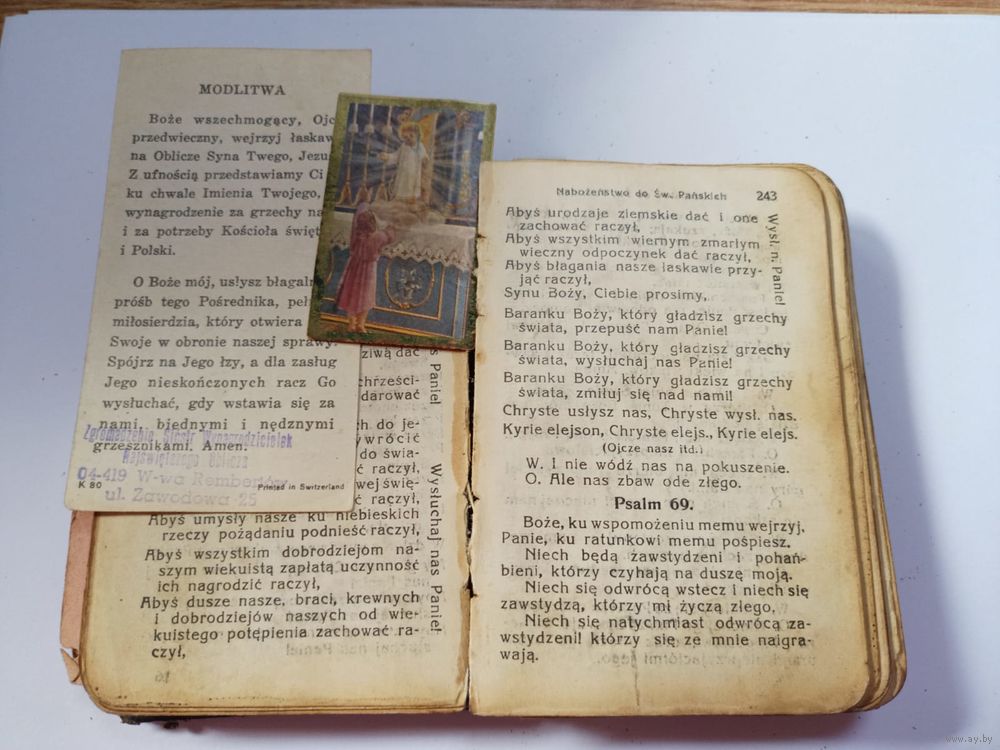 MODLITWA
Boże wszechmogący, Ojc
przedwieczny, wejrzyj łaskaw
na Oblicze Syna Twego, Jezu
Z ufnością przedstawiamy Ci
ku chwale Imienia Twojego,
wynagrodzenie za grzechy na
i za potrzeby Kościoła święt
i Polski.
O Boże mój, usłysz błagaln
próśb tego Pośrednika, peł
miłosierdzia, który otwiera
Swoje w obronie naszej sprawy.
Spójrz na Jego łzy, a dla zasług
Jego nieskończonych racz Go
wysłuchać, gdy wstawia się za
nami, biednymi i nędznymi
grzesznikami. Amen.
Zgromadzenie Sióstr Wynagrodzicielek
Najświętszego Oblicza
04-419 W-wa Rembertów
ul. Zawodowa 25
K 80
Printed in Switzerland
dziwą dać
chrześci-
darować
ch do je-
wrócić
do świa-
ć raczył,
wej świę-
ć raczył,
Abyś umysły nasze ku niebieskich
rzeczy pożądaniu podnieść raczył,
Abyś wszystkim dobrodziejom na-
szym wiekuistą zapłatą uczynność
ich nagrodzić raczył,
Abyś dusze nasze, braci, krewnych
i dobrodziejów naszych od wie-
kuistego potępienia zachować ra-
czył,
s Panie!
Wysłuchaj nas Panie!
Nabożeństwo do Św. Pańskich 243
Abyś urodzaje ziemskie dać i one
zachować raczył,
Abyś wszystkim wiernym zmarłym
wieczny odpoczynek dać raczył,
Abyś błagania nasze łaskawie przy-
jąć raczył,
Wysł. n. Panie!
Synu Boży, Ciebie prosimy,
Baranku Boży, który gładzisz grzechy
świata, przepuść nam Panie!
Baranku Boży, który gładzisz grzechy
świata, wysłuchaj nas Panie!
Baranku Boży, który gładzisz grzechy
świata, zmiłuj się nad nami!
Chryste usłysz nas, Chryste wysł. nas.
Kyrie elejson, Chryste elejs., Kyrie elejs.
(Ojcze nasz itd.)
W. I nie wódź nas na pokuszenie.
O. Ale nas zbaw ode złego.
Psalm 69.
Boże, ku wspomożeniu memu wejrzyj.
Panie, ku ratunkowi memu pośpiesz.
Niech będą zawstydzeni i pohań-
bieni, którzy czyhają na duszę moją.
Niech się odwrócą wstecz i niech się
zawstydzą, którzy mi życzą złego.
Niech się natychmiast odwrócą za-
wstydzeni! którzy się ze mnie naigra-
wają.
www.ay.by